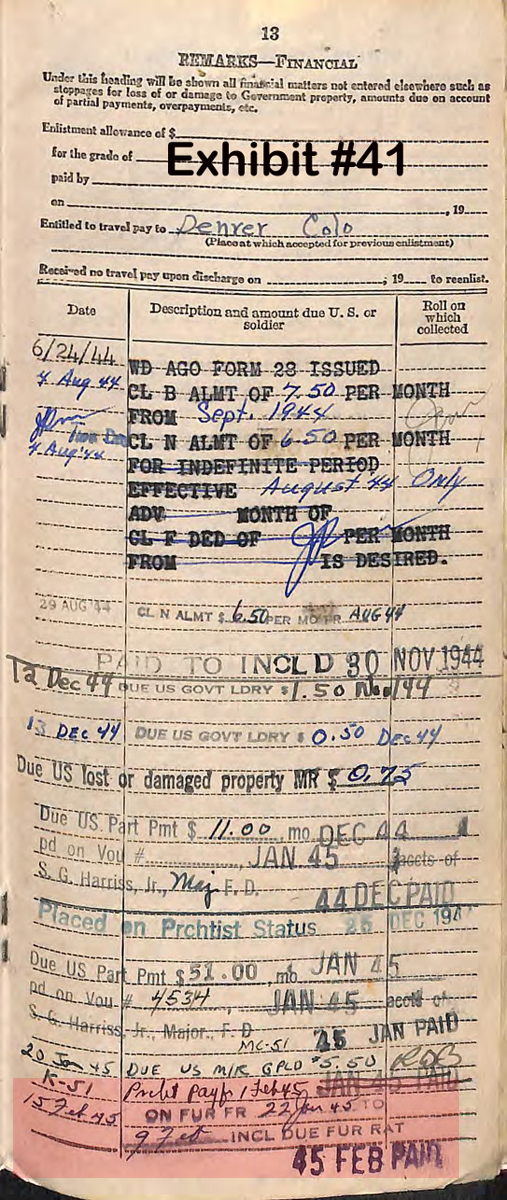 13
REMARKS—FINANCIAL
Under this heading will be shown all financial matters not entered elsewhere such as
stoppages for loss of or damage to Government property, amounts due on account
of partial payments, overpayments, etc.
Enlistment allowance of $
for the grade of
Exhibit #41
paid by
on , 19
Entitled to travel pay to Denver Colo
(Place at which accepted for previous enlistment)
Received no travel pay upon discharge on ; 19 to reenlist.
Date Description and amount due U. S. or soldier Roll on which collected
6/24/44 WD AGO FORM 28 ISSUED
4 Aug 44 CL B ALMT OF 7.50 PER MONTH
FROM Sept. 1944
4 Aug 44 CL N ALMT OF 6.50 PER MONTH
FOR INDEFINITE PERIOD
EFFECTIVE August 44 Only
ADV MONTH OF
CL F DED OF PER MONTH
FROM IS DESIRED.
29 AUG 44 CL N ALMT $ 6.50 PER MO FR AUG 44
PAID TO INCL D 30 NOV 1944
12 Dec 44 DUE US GOVT LDRY $ 1.50 Nov 44
13 DEC 44 DUE US GOVT LDRY $ 0.50 Dec 44
Due US lost or damaged property MR $ 0.75
Due US Part Pmt $ 11.00, mo DEC 44
pd on Vou # , JAN 45 accts of
S. G. Harriss, Jr., Maj F. D.
44 DEC PAID
Placed on Prchtist Status 25 DEC 194
Due US Part Pmt $ 51.00, mo JAN 45
pd on Vou # 4534, JAN 45 accts of
S. G. Harriss, Jr., Major, F. D
MC-51 45 JAN PAID
20 Jan 45 DUE US M/R GPLD $5.50 RDB
K-51 Prcht Pay fr 1 Feb 45 JAN 45 PAID
15 Feb 45 ON FUR FR 22 Jan 45 TO
9 Feb INCL DUE FUR RAT
45 FEB PAID